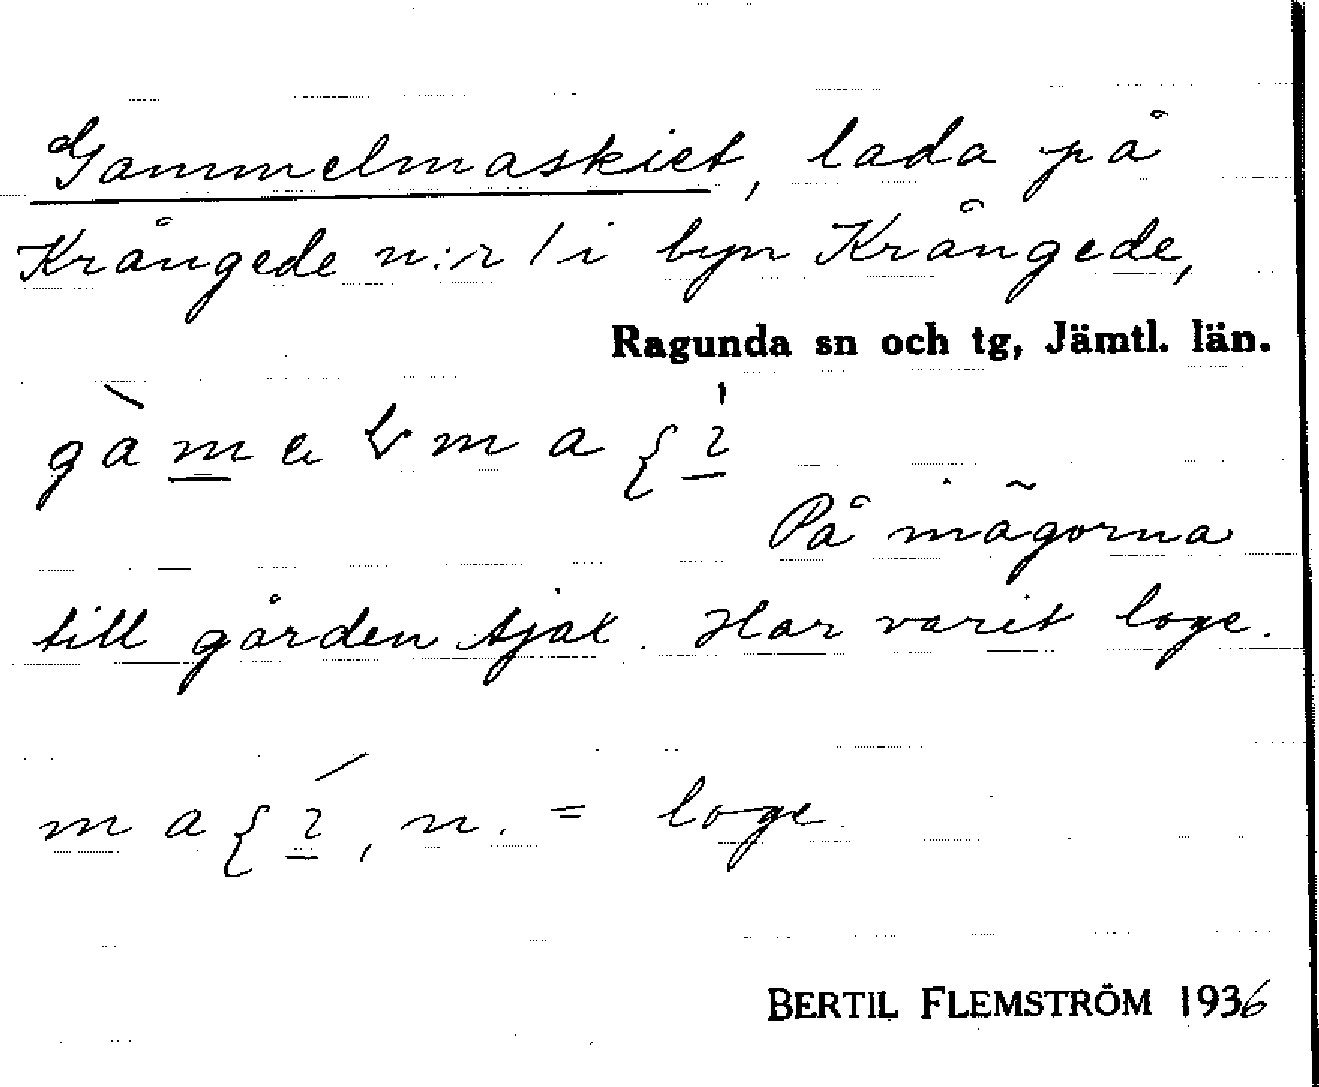 Gammelmaskiet, lada på
Krångede n:r 1 i byn Krångede,
Ragunda sn och tg, Jämtl. län.
På mägorna
till gården själ. Har varit loge.
n. = loge
BERTIL FLEMSTRÖM 1936